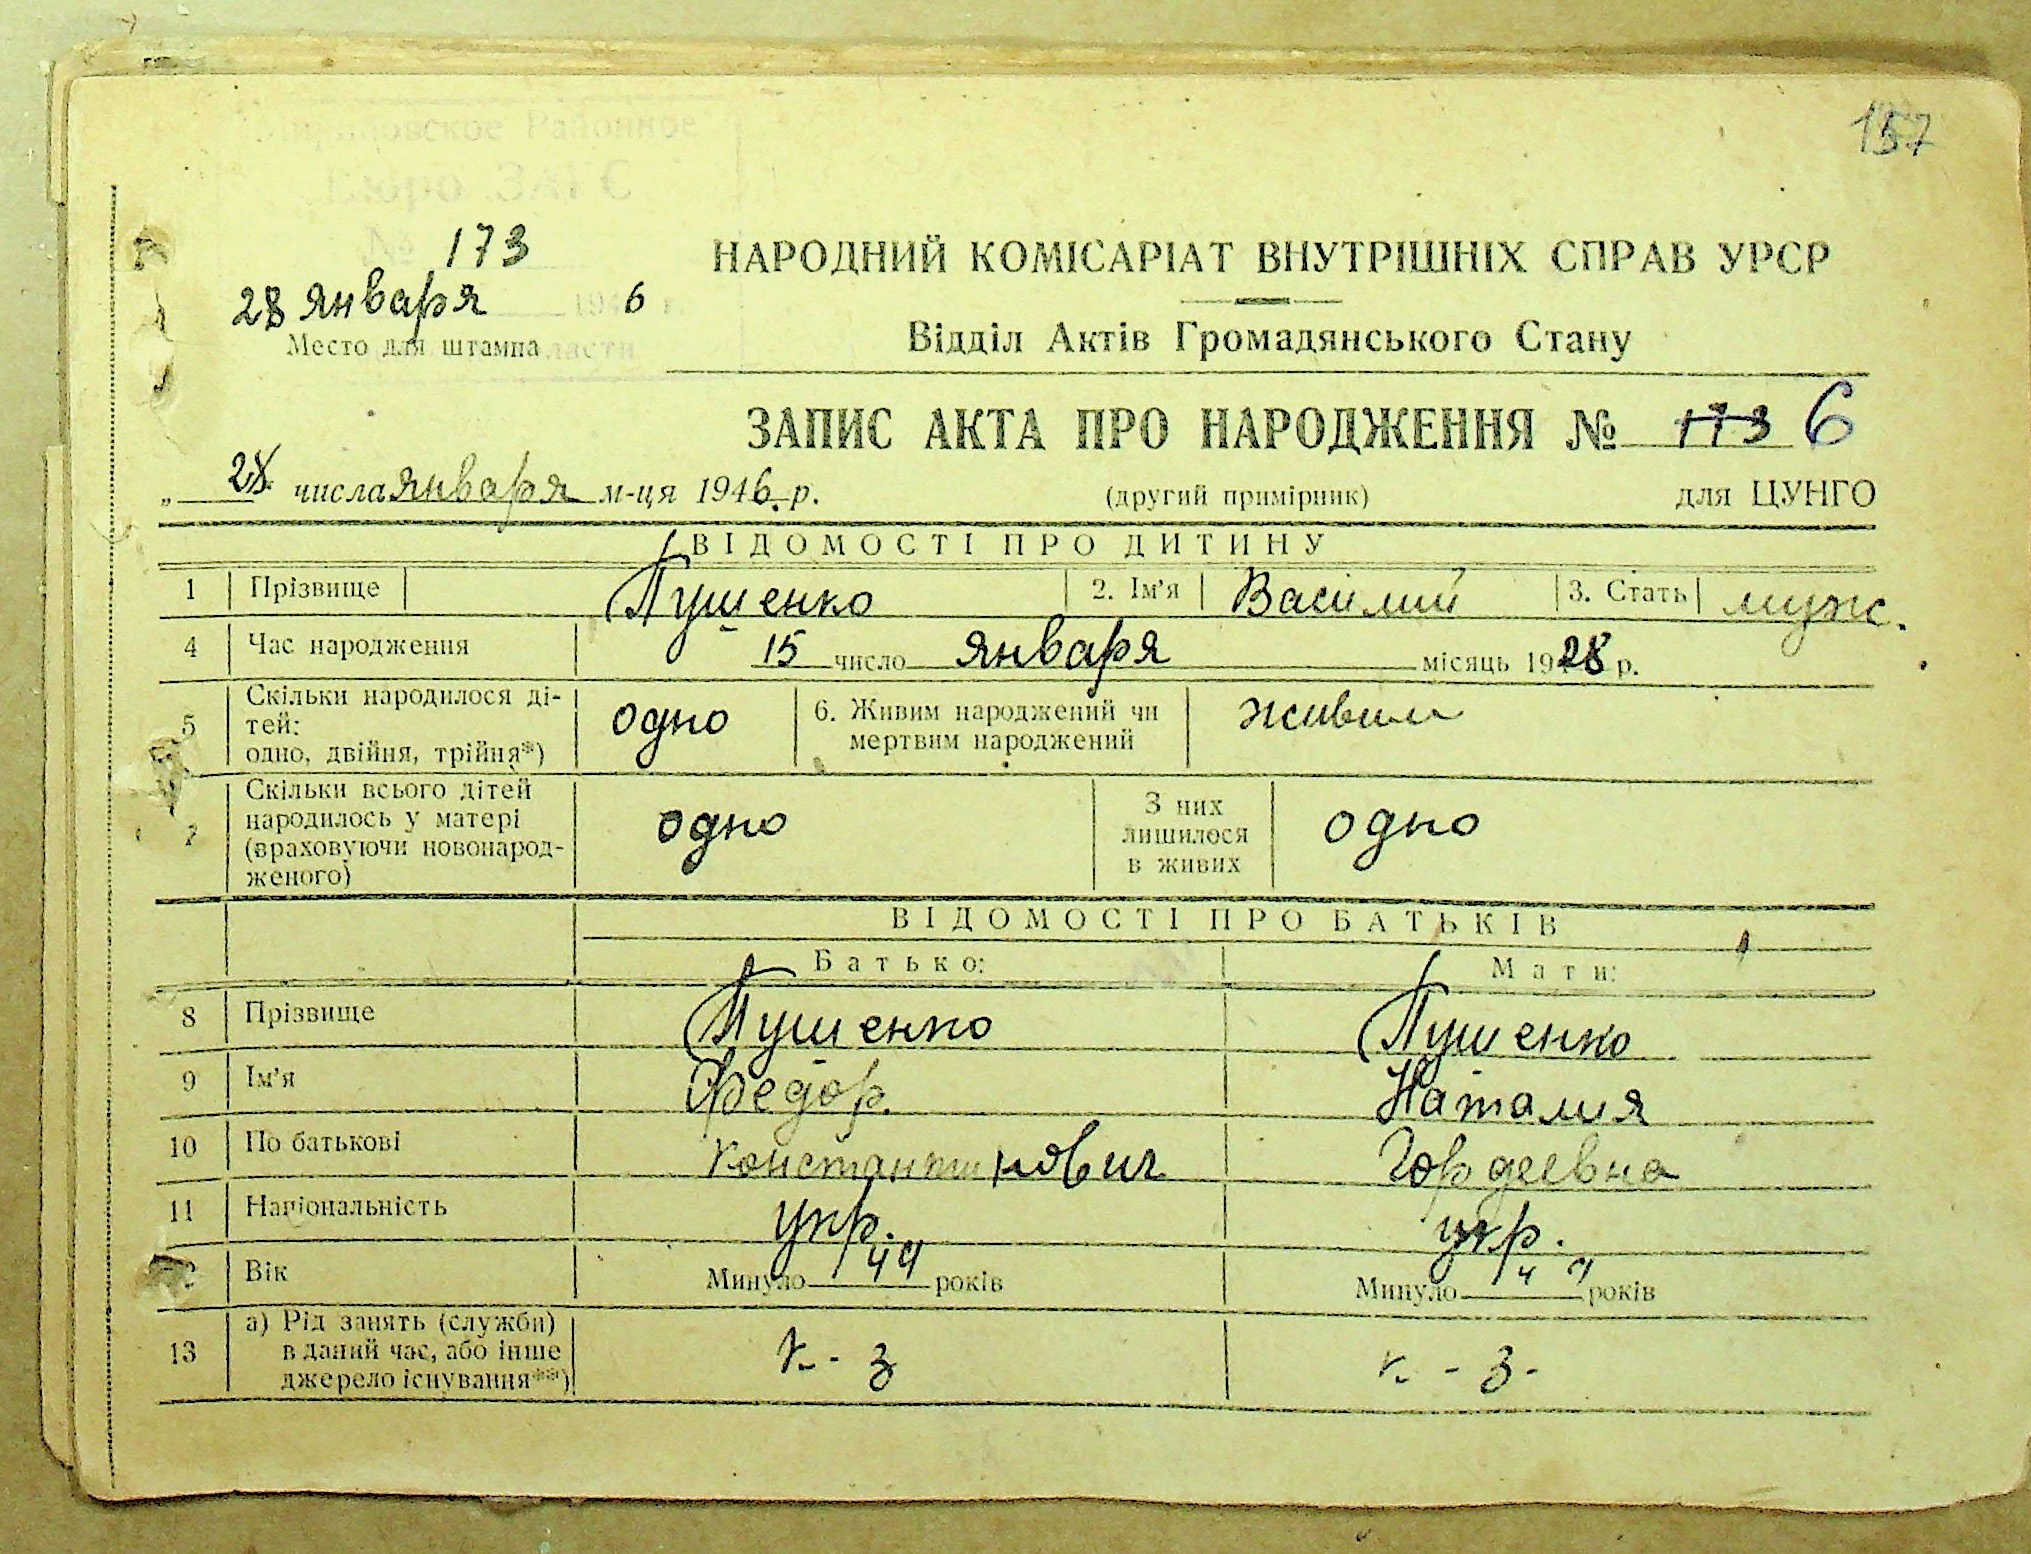 157
Районное
Бюро ЗАГС
№ 173
28 января 1946 г.
Место для штампа
НАРОДНИЙ КОМІСАРІАТ ВНУТРІШНІХ СПРАВ УРСР
Відділ Актів Громадянського Стану
ЗАПИС АКТА ПРО НАРОДЖЕННЯ № 173 6
„ 28 числа января м-ця 1946 р. (другий примірник) для ЦУНГО
ВІДОМОСТІ ПРО ДИТИНУ
1 Прізвище Пушенко 2. Ім'я Василий 3. Стать муж.
4 Час народження 15 число января місяць 1928 р.
5 Скільки народилося ді-
тей:
одно, двійня, трійня*) одно 6. Живим народжений чи
мертвим народжений живым
7 Скільки всього дітей
народилось у матері
(враховуючи новонарод-
женого) одно З них
лишилося
в живих одно
ВІДОМОСТІ ПРО БАТЬКІВ
Батько: Мати:
8 Прізвище Пушенко Пушенко
9 Ім'я Федор. Наталия
10 По батькові Константинович Гордеевна
11 Національність укр. укр.
12 Вік Минуло 44 років Минуло 44 років
13 а) Рід занять (служби)
в даний час, або інше
джерело існування**) к-з к-з-